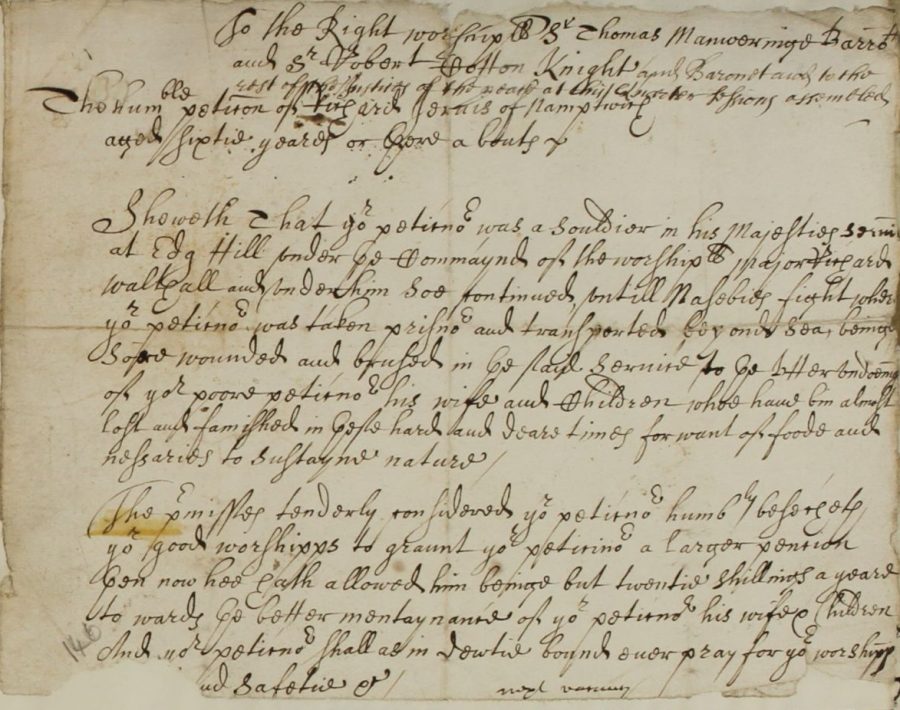 To the Right worshipll Sr Thomas Manweringe Barrt
and Sr Robert Cotton Knight and Baronet and to the
rest of the Justices of the peace at this Quarter sessions assembled
The humble peticon of Richard Jervis of Namptwich
aged sixtie yeares or there a bouts
Sheweth That yor peticnor was a souldier in his Majesties servi
at Edg Hill under the Commaynd of the worshipll Major Richard
Walthall and under him soe continued untill Nasebies fight when
yor peticnor was taken prisnor and transported beyond sea, beinge
sore wounded and brused in the said service to the utter undoeing
of yor poore peticnor his wife and Children whoe have bin almost
lost and famished in these hard and deare times for want of foode and
nessaries to sustayne nature
The pmisses tenderly considered yor peticnor humbly besecheth
yor good worshipps to graunt yor peticinor a larger pencion
then now hee hath allowed him beinge but twentie shillings a yeare
to wards the better mentaynance of yor peticnor his wife & Children
And yor peticnor shall as in dewtie bound ever pray for yor worshipps
nd safetie &c
146